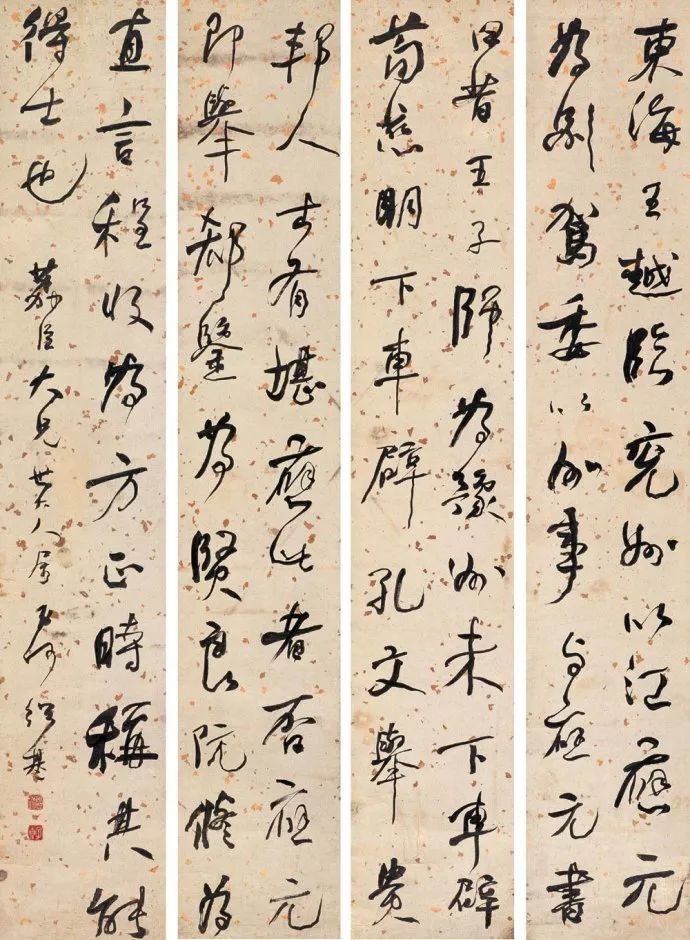 東海王越臨兗州以江應元
為別駕委以州事與應元書
曰昔王子師為豫州未下車辟
荀慈明下車辟孔文舉貴
邦人士有堪應此者否應元
即舉郗鑒為賢良阮脩為
直言程收為方正時稱其能
得士也
大兄世大人屬 何紹基